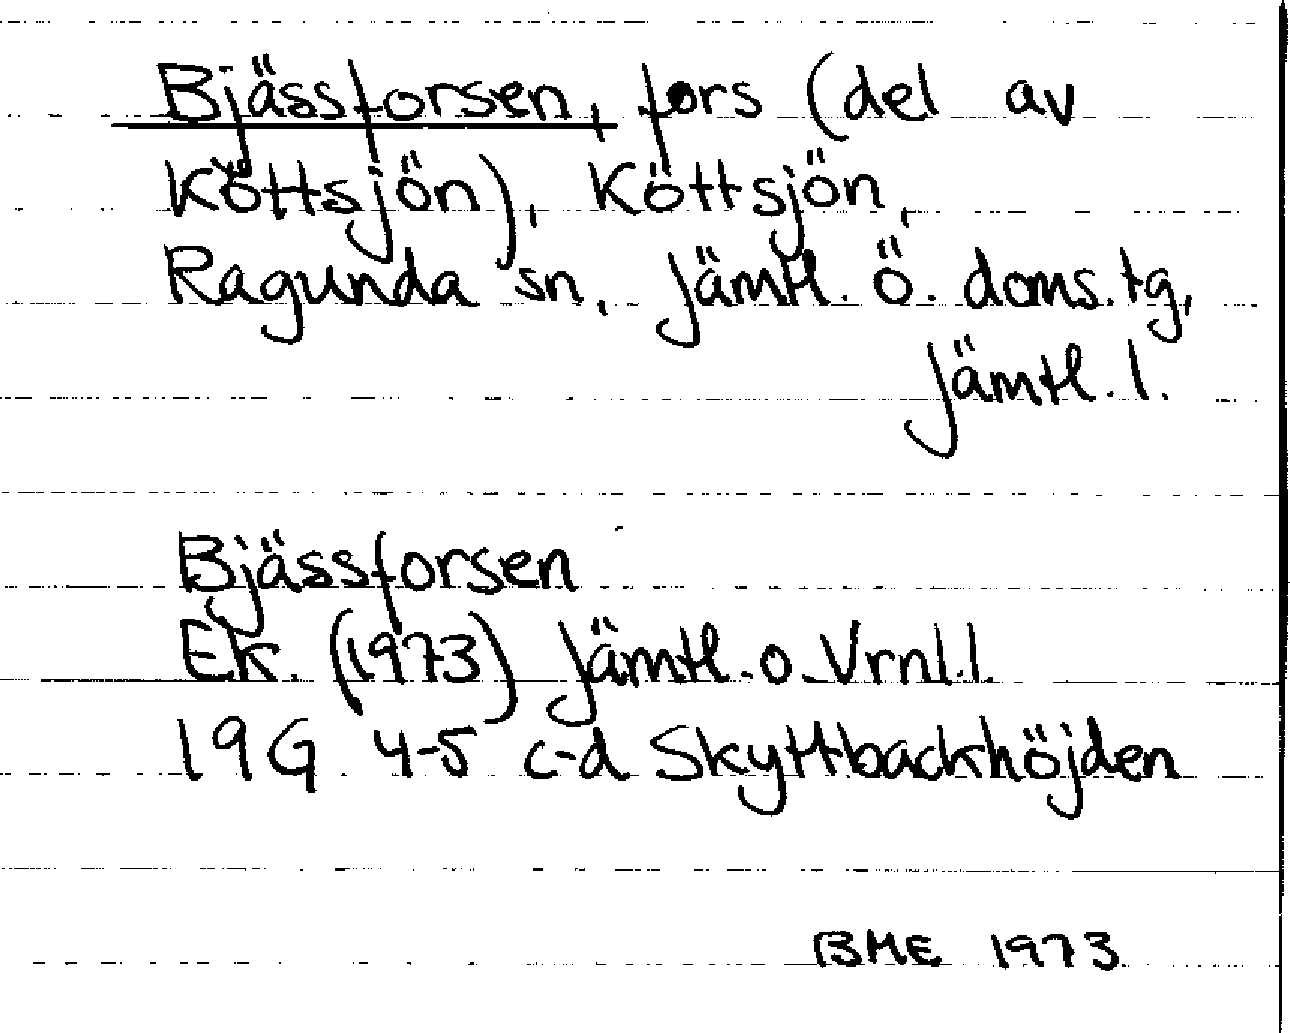 Bjässforsen, fors (del av
Köttsjön), Köttsjön,
Ragunda sn, Jämtl. Ö. doms.tg,
Jämtl. l.
Bjässforsen
Ek. (1973) Jämtl. o. Vrnl.l.
19G 4-5 c-d Skyttbackhöjden
BME 1973